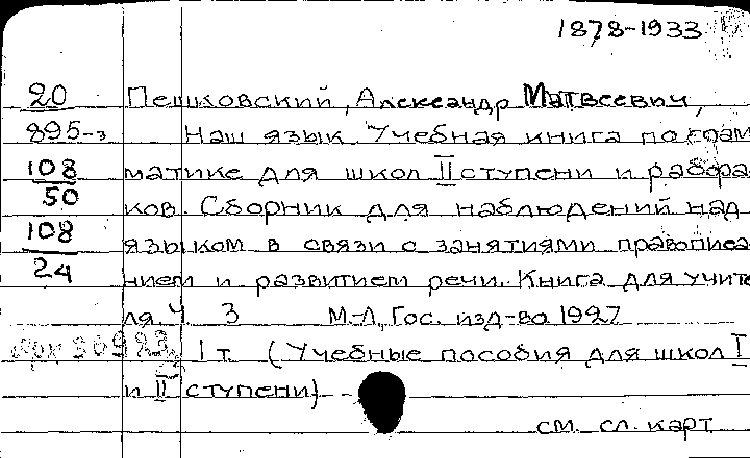 1878-1933
20 Пешковский, Александр Матвеевич,
895-з Наш язык. Учебная книга по грам
108 матике для школ II ступени и рабфа
50 ков. Сборник для наблюдений над
108 языком в связи с занятиями правописа
24 нием и развитием речи. Книга для учите
ля. Ч. 3 М.-Л., Гос. изд-во 1927
1 т. (Учебные пособия для школ I
и II ступени)
см. сл. карт